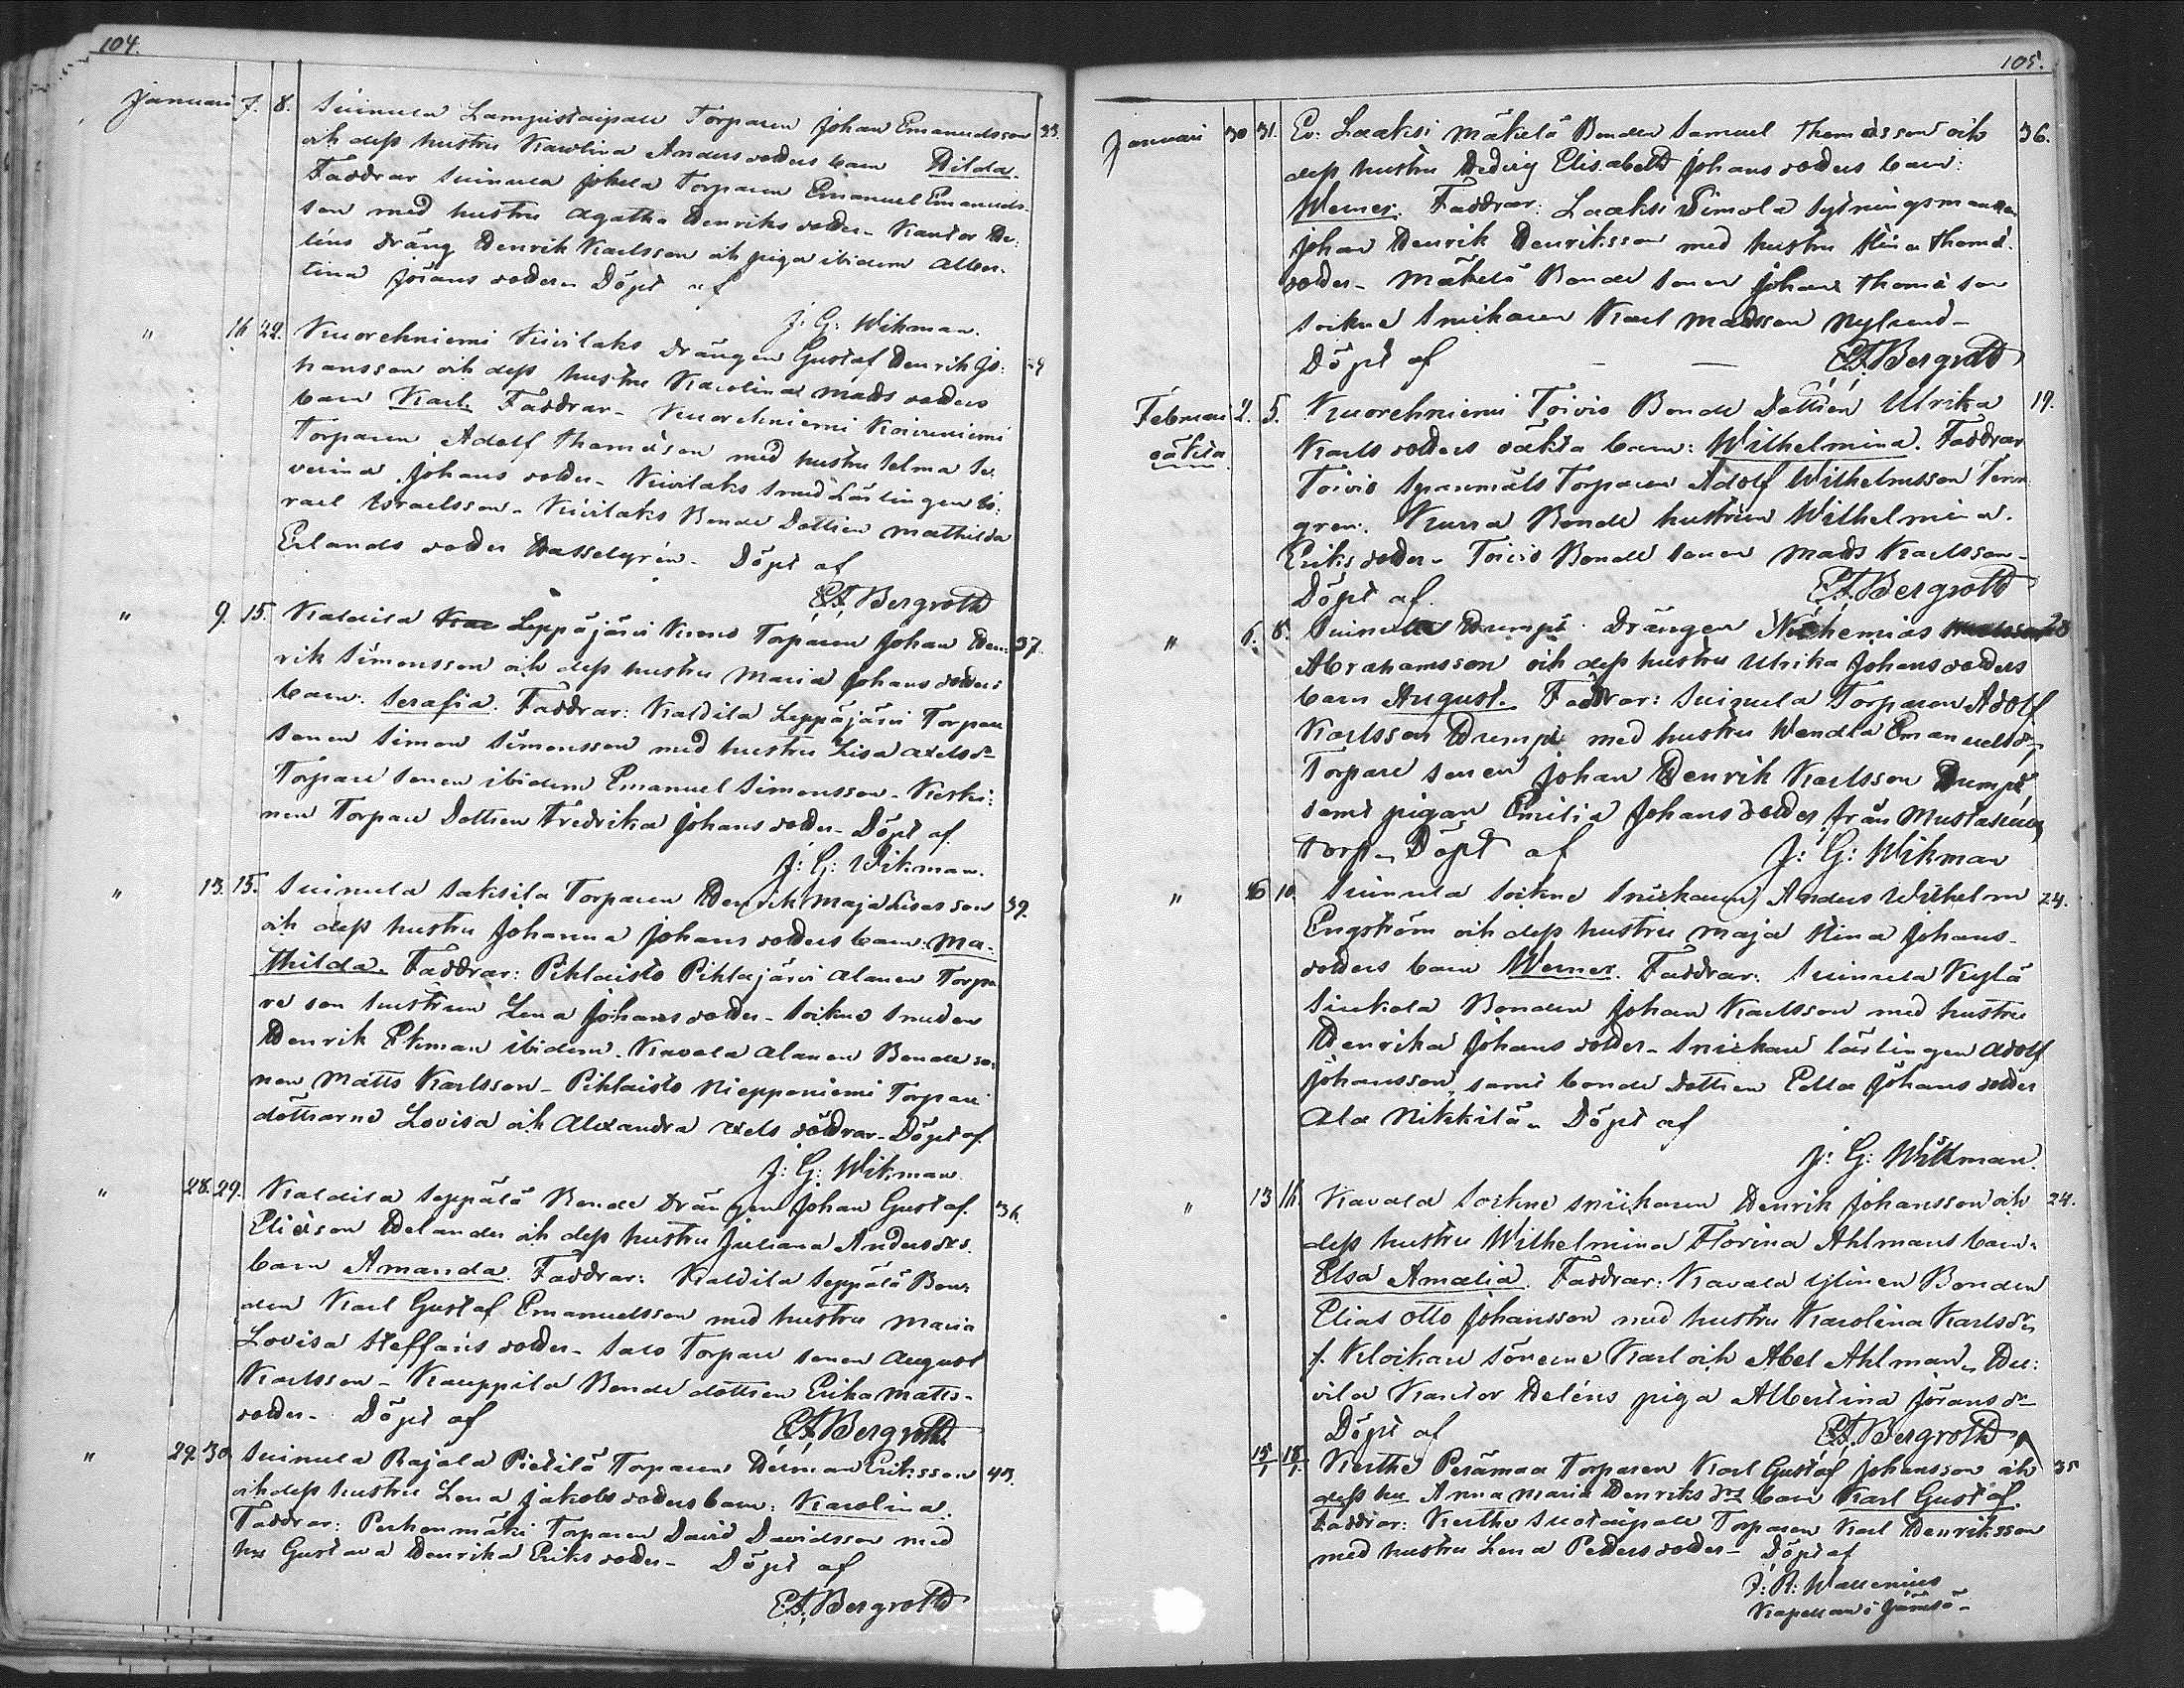 104.
Januari 7. 8. Suinula Lampistaipale Torparen Johan Emanuelsson 23.
och dess hustru Karolina Anders dotters barn Hilda.
Faddrar Suinula Jokela Torparen Emanuel Emanuels-
son med hustru Agatha Henriks dotter - Kantor He-
léns dräng Henrik Karlsson och piga ibidem Alber-
tina Jörans dotter Döpt af
J: G: Wikman.
" 16 22. Kuorehniemi Kivilaks drängen Gustaf Henrik Jo-
hansson och dess hustru Karolina Mads dotters
barn Karl. Faddrar - Kuorehniemi Koivuniemi
Torparen Adolf Thomasson med hustru Selma Se-
verina Johans dotter - Kivilaks smed Lärlingen Is-
rael Israelsson - Kivilaks Bonde Dottren Mathilda
Erlands dotter Hasselgrén - Döpt af
E.F. Bergroth
" 9. 15. Kaldila Leppäjärvi Torparen Johan Hen- 37.
rik Simonsson och dess hustru Maria Johans dotters
barn: Serafia. Faddrar: Kaldila Leppäjärvi Torpare
sonen Simon Simonsson med hustru Lisa Axelsdr
Torpare sonen ibidem Emanuel Simonsson - Keski-
nen Torpare Dottren Fredrika Johans dotter - Döpt af
J: G: Wikman.
" 13. 15. Suinula Saksila Torparen Henrik Maja Lisas son 39.
och dess hustru Johanna Johans dotters barn: Ma-
thilda. Faddrar: Pihlaisto Pihlajärvi Alanen Torpa
re son hustrun Lena Johans dotter - Sockne Smeden
Henrik Ekman ibidem - Kavala Alanen Bonde so-
nen Matts Karlsson - Pihlaisto Niepponiemi Torpare
döttrarne Lovisa och Alexandra Axels döttrar - Döpt af
J: G: Wikman.
" 28. 29. Kaldila Seppälä Bonde Drängen Johan Gustaf 36.
Eliasson Helander och dess hustru Juliana Andersdrs
barn Amanda. Faddrar: Kaldila Seppälä Bon-
den Karl Gustaf Emanuelsson med hustru Maria
Lovisa Steffans dotter - Salo Torpare sonen August
Karlsson - Kauppila Bonde dottren Erika Matts-
dotter - Döpt af E.F. Bergroth
" 29. 30. Suinula Rajala Pietilä Torparen Herman Eriksson 43.
och dess hustru Lena Jakobs dotters barn: Karolina.
Faddrar: Perhonmäki Torparen David Davidsson med
hu Gustava Henrika Eriks dotter - Döpt af
E.F. Bergroth
105.
Januari 30 31. Ev: Laaksi Mäkelä Bonden Samuel Thomasson och 36.
dess hustru Hedvig Elisabeth Johans dotters barn:
Werner. Faddrar: Laaksi Simola Sytningsmannen
Johan Henrik Henriksson med hustru Stina Thomæ
dotter - Mäkelä Bonde sonen Johan Thomasson
Sockne Snickaren Karl Madsson Nylund -
Döpt af E.F. Bergroth
Februari 2. 5. Kuorehniemi Toivio Bonde Dottren Ulrika 19.
oäkta Karls dotters oäkta barn: Wilhelmina. Faddrar
Toivio Torparen Adolf Wilhelmsson
gren. Kurra Bonde hustrun Wilhelmina
Eriks dotter - Toivio Bonde sonen Mads Karlsson -
Döpt af. E.F. Bergroth
" 6. 8. Suinula Humpi Drängen Nehemias 28
Abrahamsson och dess hustru Ulrika Johans dotters
barn August. Faddrar: Suinula Torparen Adolf
Karlsson Humpi med hustru Wendla Emanuelsdr
Torpare sonen Johan Henrik Karlsson Humpi
samt pigan Emilia Johans dotter från
Torp - Döpt af J: G: Wikman
" 6 10. Suinula Sockne Snickaren Anders Wilhelm 24.
Engström och dess hustru Maja Stina Johans-
dotters barn Werner. Faddrar: Suinula Kylä
Siukola Bonden Johan Karlsson med hustru
Henrika Johans dotter - Snickare lärlingen Adolf
Johansson, samt bonde dottren Edla Johans dotter
Ala Nikkilä - Döpt af
J: G: Wikman.
" 13 16. Kavala Sockne Snickaren Henrik Johansson och 24.
dess hustru Wilhelmina Florina Ahlmans barn:
Elsa Amalia. Faddrar: Kavala Ylinen Bonden
Elias Otto Johansson med hustru Karolina Karlsdr
f. Klockare sönerne Karl och Abel Ahlman -
Kantor Heléns piga Albertina Jöransdr
Döpt af E.F. Bergroth
15/1 18/1. Kerthe Perämaa Torparen Karl Gustaf Johansson och 35
dess hu Anna Maria Henriks drs barn Karl Gustaf.
Faddrar: Kerthe Suotaipale Torparen Karl Henriksson
med hustru Lena Petters dotter - Döpt af
J: R: Wallenius
Kapellan i Jämsä -